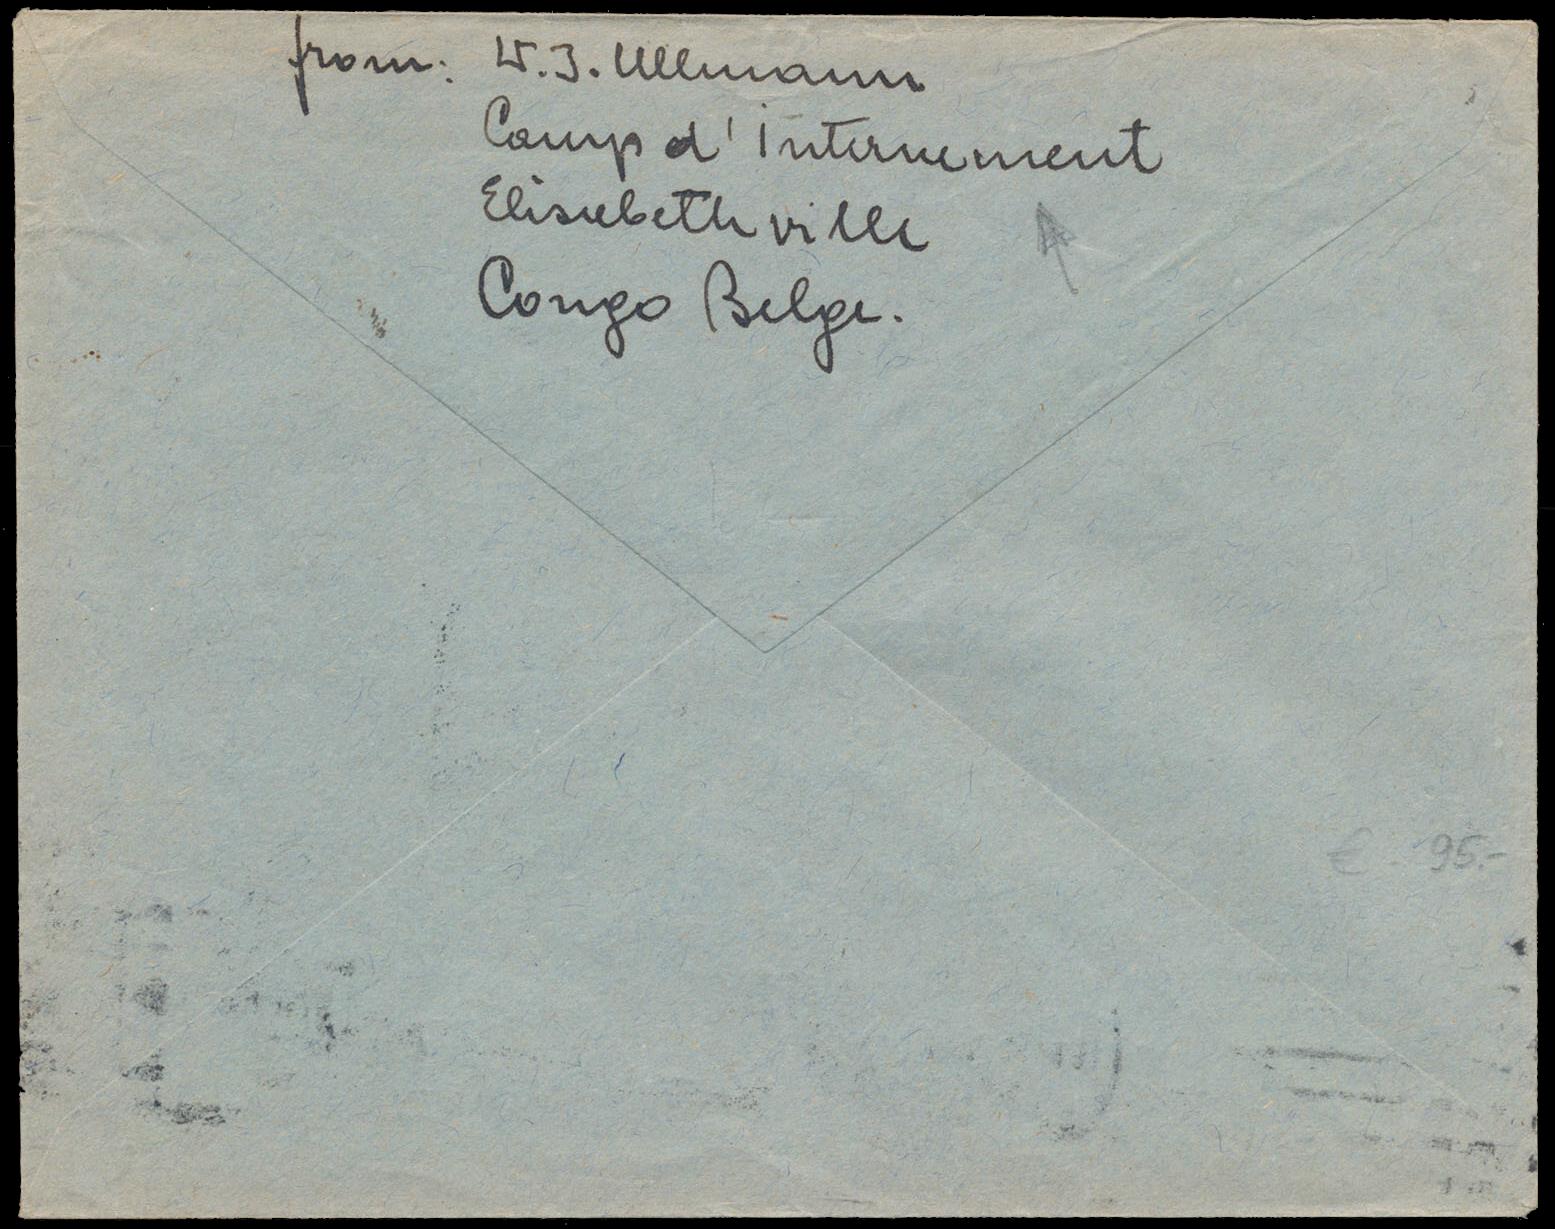 from: W.J. Ullmann
Camp d'Internement
Elisabethville
Congo Belge.
€ - 95.-